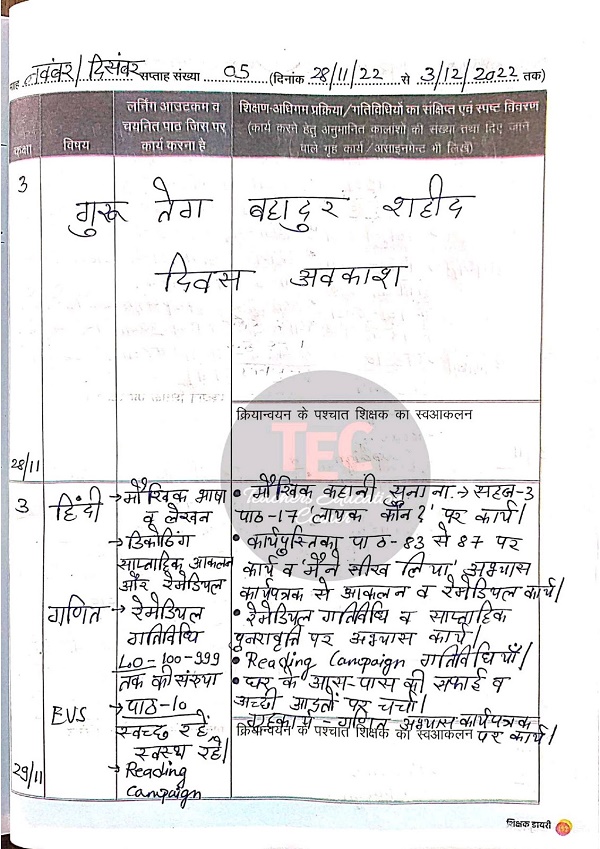 माह नवंबर/दिसंबर सप्ताह संख्या 05 (दिनांक 28/11/22 से 3/12/2022 तक)
कक्षा
विषय
लर्निंग आउटकम व
चयनित पाठ जिस पर
कार्य करना है
शिक्षण-अधिगम प्रक्रिया/गतिविधियों का संक्षिप्त एवं स्पष्ट विवरण
(कार्य करने हेतु अनुमानित कालांशों की संख्या तथा दिए जाने
वाले गृह कार्य/असाइनमेन्ट भी लिखें)
3
गुरू तेग बहादुर शहीद
दिवस अवकाश
क्रियान्वयन के पश्चात शिक्षक का स्वआकलन
28/11
TEC
3
हिंदी
→ मौखिक भाषा
व लेखन
→ डिकोडिंग
साप्ताहिक आकलन
और रेमेडियल
गणित
→ रेमेडियल
गतिविधि
LO-100-999
तक की संख्या
EVS
→ पाठ-10
स्वच्छ रहें
स्वस्थ रहें।
→ Reading
Campaign
• मौखिक कहानी सुनाना → सहज-3
पाठ-17 'लायक कौन?' पर कार्य।
• कार्यपुस्तिका पाठ-83 से 87 पर
कार्य व 'मैंने सीख लिया' अभ्यास
कार्यपत्रक से आकलन व रेमेडियल कार्य।
• रेमेडियल गतिविधि व साप्ताहिक
पुनरावृत्ति पर अभ्यास कार्य।
• Reading Campaign गतिविधियाँ।
• घर के आस-पास की सफाई व
अच्छी आदतों पर चर्चा।
गृहकार्य - गणित अभ्यास कार्यपत्रक
पर कार्य।
क्रियान्वयन के पश्चात शिक्षक का स्वआकलन
29/11
शिक्षक डायरी